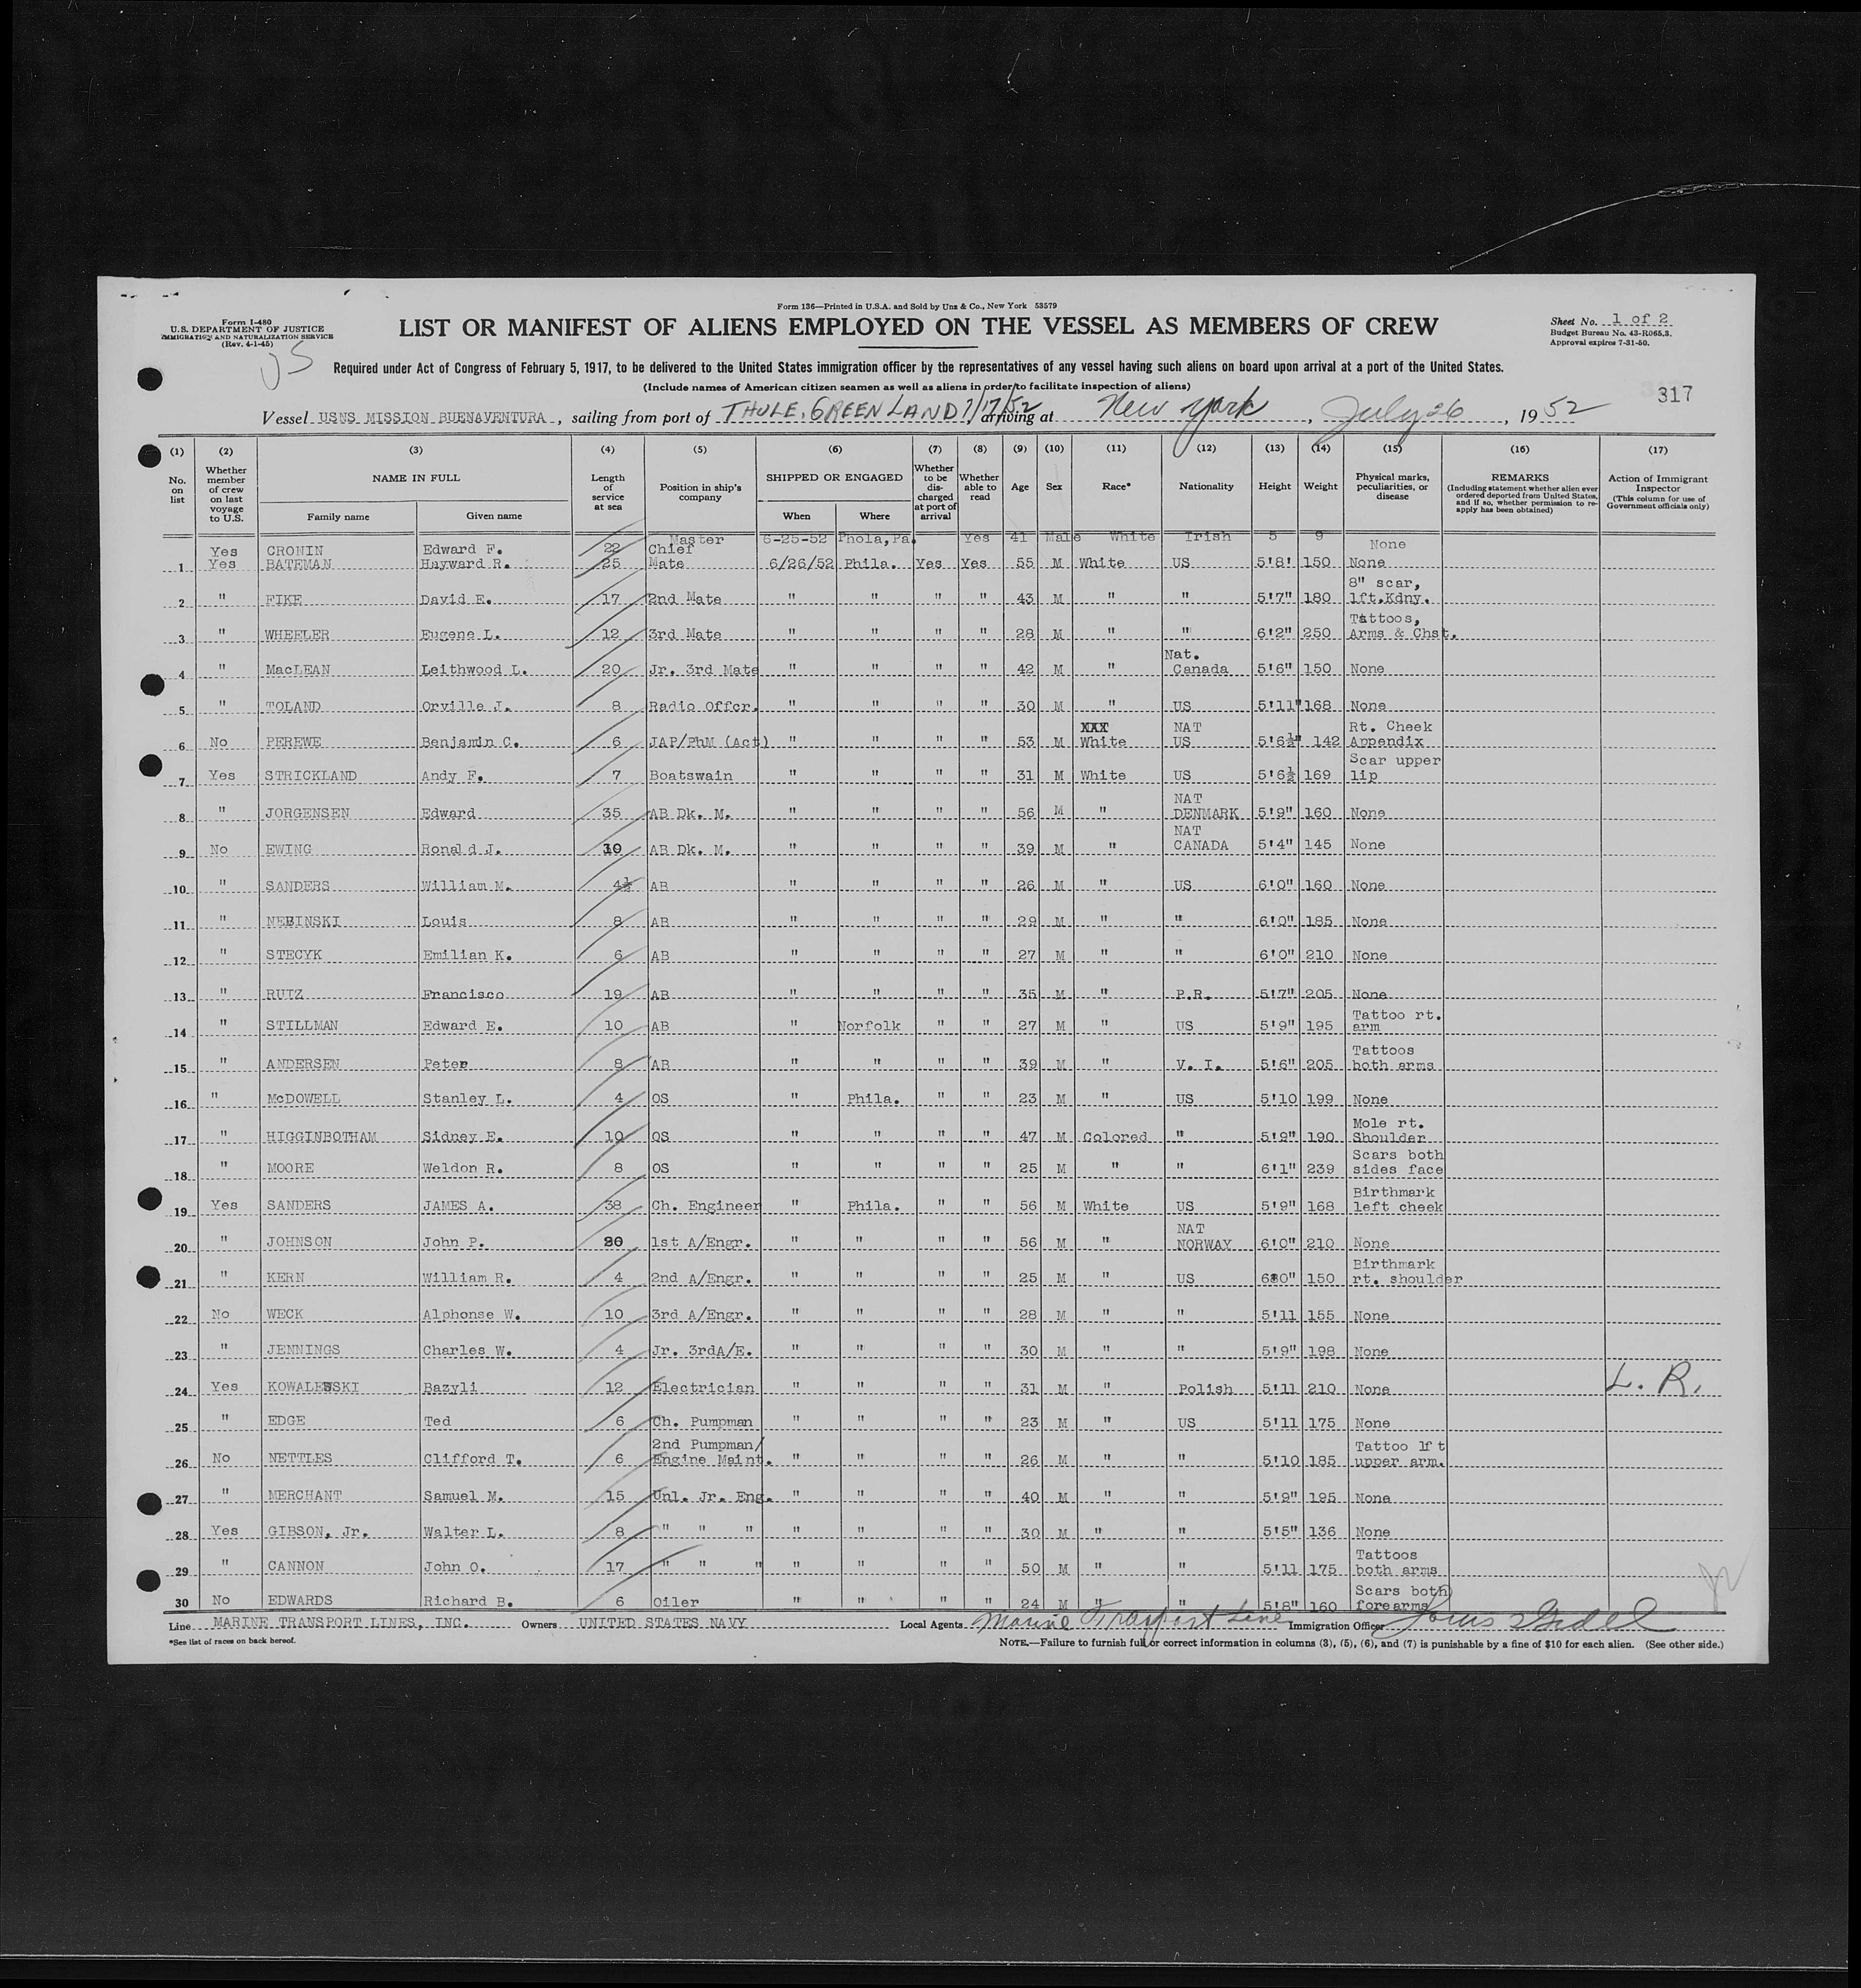 Form 136—Printed in U.S.A. and Sold by Unz & Co., New York 53579
Form I-480
U.S. DEPARTMENT OF JUSTICE
IMMIGRATION AND NATURALIZATION SERVICE
(Rev. 4-1-45)
LIST OR MANIFEST OF ALIENS EMPLOYED ON THE VESSEL AS MEMBERS OF CREW
Sheet No. 1 of 2
Budget Bureau No. 43-R065.3.
Approval expires 7-31-50.
Required under Act of Congress of February 5, 1917, to be delivered to the United States immigration officer by the representatives of any vessel having such aliens on board upon arrival at a port of the United States.
(Include names of American citizen seamen as well as aliens in order to facilitate inspection of aliens)
317
Vessel USNS MISSION BUENAVENTURA, sailing from port of THULE, GREENLAND 7/17/52, arriving at New York, July 26, 1952
(1) (2) (3) (4) (5) (6) (7) (8) (9) (10) (11) (12) (13) (14) (15) (16) (17)
No. on list
Whether member of crew on last voyage to U.S.
NAME IN FULL
Family name
Given name
Length of service at sea
Position in ship's company
SHIPPED OR ENGAGED
When
Where
Whether to be discharged at port of arrival
Whether able to read
Age
Sex
Race*
Nationality
Height
Weight
Physical marks, peculiarities, or disease
REMARKS
(Including statement whether alien ever ordered deported from United States, and if so, whether permission to reapply has been obtained)
Action of Immigrant Inspector
(This column for use of Government officials only)
Yes CRONIN Edward F. 22 Master 6-25-52 Phola,Pa. Yes 41 Male White Irish 5 9 None
1 Yes BATEMAN Hayward R. 25 Chief Mate 6/26/52 Phila. Yes Yes 55 M White US 5'8' 150 None
2 " FIKE David E. 17 2nd Mate " " " " 43 M " " 5'7" 180 8" scar, lft.Kdny.
3 " WHEELER Eugene L. 12 3rd Mate " " " " 28 M " " 6'2" 250 Tattoos, Arms & Chst.
4 " MacLEAN Leithwood L. 20 Jr. 3rd Mate " " " " 42 M " Nat. Canada 5'6" 150 None
5 " TOLAND Orville J. 8 Radio Offcr. " " " " 30 M " US 5'11" 168 None
6 No PEREWE Benjamin C. 6 JAP/PhM (Act) " " " " 53 M XXX White NAT US 5'6½" 142 Rt. Cheek Appendix
7 Yes STRICKLAND Andy F. 7 Boatswain " " " " 31 M White US 5'6½ 169 Scar upper lip
8 " JORGENSEN Edward 35 AB Dk. M. " " " " 56 M " NAT DENMARK 5'9" 160 None
9 No EWING Ronald J. 10 AB Dk. M. " " " " 39 M " NAT CANADA 5'4" 145 None
10 " SANDERS William M. 4½ AB " " " " 26 M " US 6'0" 160 None
11 " NEBINSKI Louis 8 AB " " " " 29 M " " 6'0" 185 None
12 " STECYK Emilian K. 6 AB " " " " 27 M " " 6'0" 210 None
13 " RUIZ Francisco 19 AB " " " " 35 M " P.R. 5'7" 205 None
14 " STILLMAN Edward E. 10 AB " Norfolk " " 27 M " US 5'9" 195 Tattoo rt. arm
15 " ANDERSEN Peter 8 AB " " " " 39 M " V. I. 5'6" 205 Tattoos both arms
16 " McDOWELL Stanley L. 4 OS " Phila. " " 23 M " US 5'10 199 None
17 " HIGGINBOTHAM Sidney E. 10 OS " " " " 47 M Colored " 5'9" 190 Mole rt. Shoulder
18 " MOORE Weldon R. 8 OS " " " " 25 M " " 6'1" 239 Scars both sides face
19 Yes SANDERS JAMES A. 38 Ch. Engineer " Phila. " " 56 M White US 5'9" 168 Birthmark left cheek
20 " JOHNSON John P. 20 1st A/Engr. " " " " 56 M " NAT NORWAY 6'0" 210 None
21 " KERN William R. 4 2nd A/Engr. " " " " 25 M " US 6'0" 150 Birthmark rt. shoulder
22 No WECK Alphonse W. 10 3rd A/Engr. " " " " 28 M " " 5'11 155 None
23 " JENNINGS Charles W. 4 Jr. 3rdA/E. " " " " 30 M " " 5'9" 198 None
24 Yes KOWALEWSKI Bazyli 12 Electrician " " " " 31 M " Polish 5'11 210 None L. R.
25 " EDGE Ted 6 Ch. Pumpman " " " " 23 M " US 5'11 175 None
26 No NETTLES Clifford T. 6 2nd Pumpman/ Engine Maint. " " " " 26 M " " 5'10 185 Tattoo lft upper arm.
27 " MERCHANT Samuel M. 15 Unl. Jr. Eng. " " " " 40 M " " 5'9" 195 None
28 Yes GIBSON, Jr. Walter L. 8 " " " " " " " 30 M " " 5'5" 136 None
29 " CANNON John O. 17 " " " " " " " 50 M " " 5'11 175 Tattoos both arms
30 No EDWARDS Richard B. 6 Oiler " " " " 24 M " " 5'8" 160 Scars both forearms
Line MARINE TRANSPORT LINES, INC. Owners UNITED STATES NAVY Local Agents Marine Transport Line Immigration Officer
*See list of races on back hereof.
NOTE.—Failure to furnish full or correct information in columns (3), (5), (6), and (7) is punishable by a fine of $10 for each alien. (See other side.)